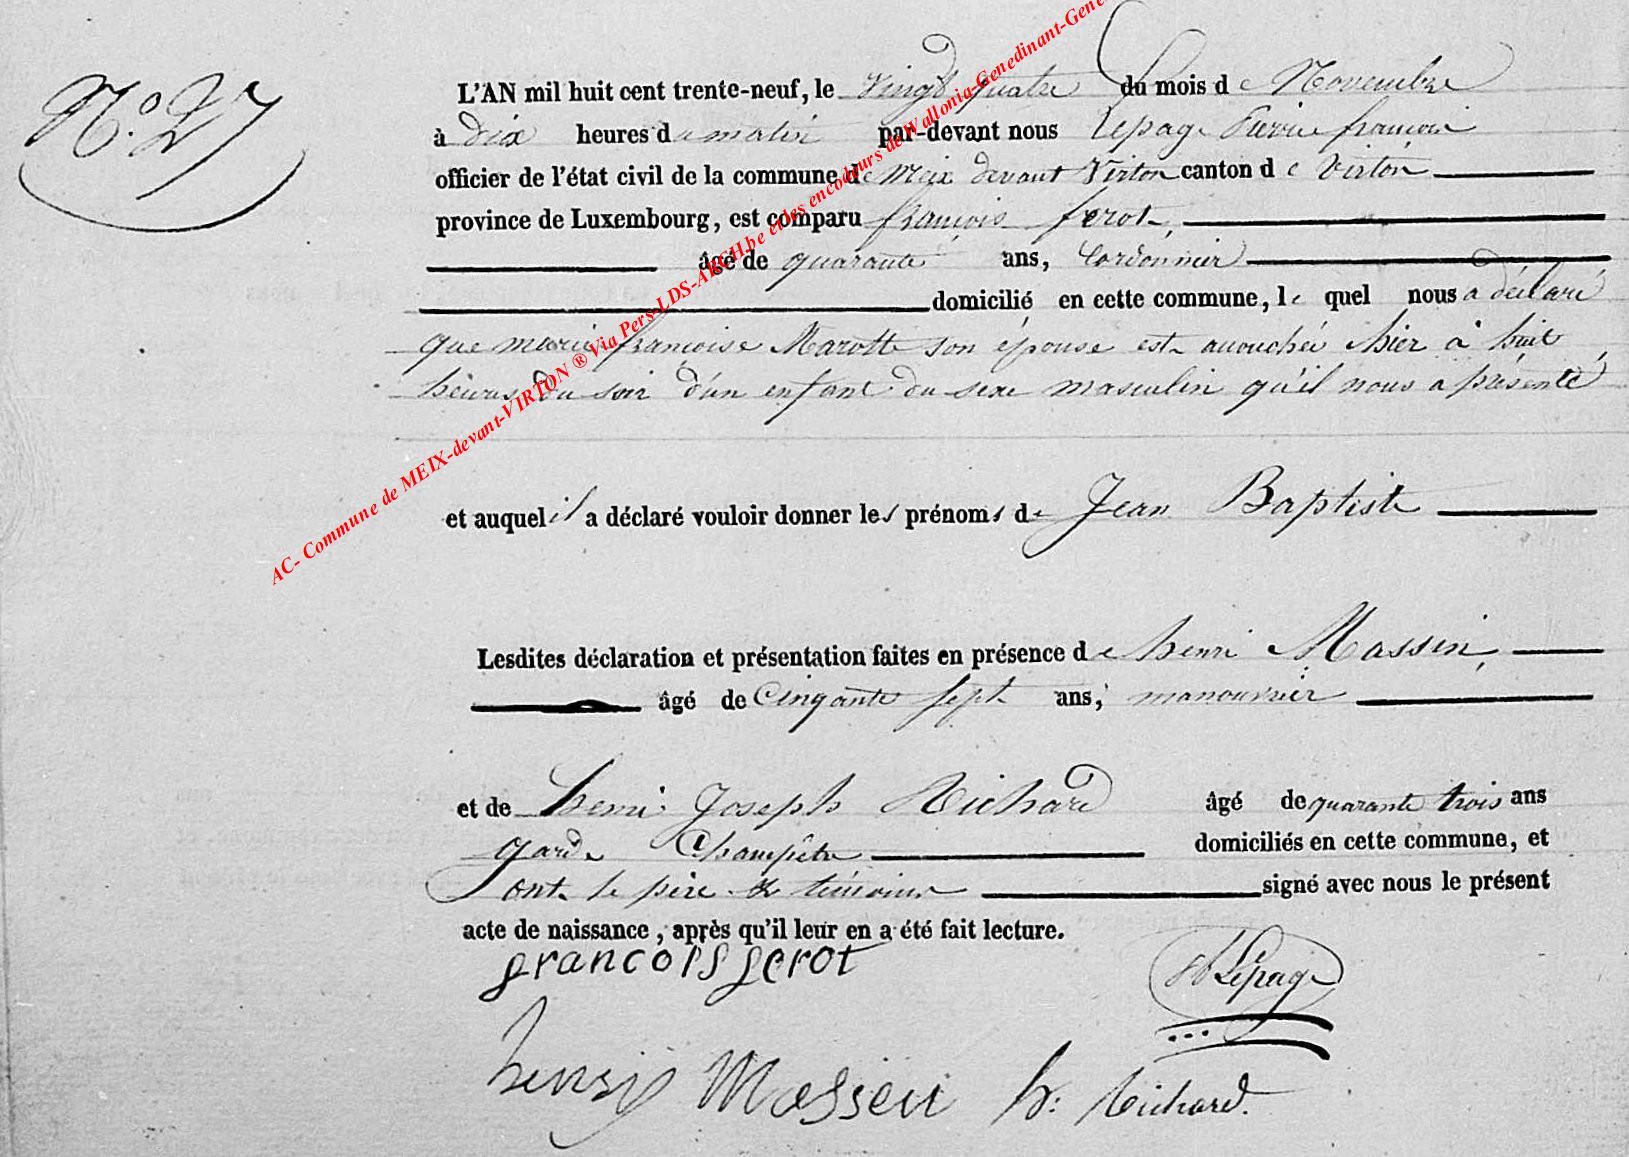 N.° 27
L'AN mil huit cent trente-neuf, le vingt quatre du mois de Novembre
à dix heures du matin par-devant nous Lepage Pierre françois
officier de l'état civil de la commune de Meix devant Virton canton de Virton
province de Luxembourg, est comparu françois ferot,
âgé de quarante ans, Cordonnier
domicilié en cette commune, le quel nous a déclaré
que marie françoise Marotte son épouse est accouchée hier à huit
heures du soir d'un enfant du sexe masculin qu'il nous a présenté,
et auquel il a déclaré vouloir donner les prénoms de Jean Baptiste
Lesdites déclaration et présentation faites en présence de henri Massin,
âgé de Cinqante sept ans, manouvrier
et de henri Joseph Richard âgé de quarante trois ans
garde Champêtre domiciliés en cette commune, et
ont le père & témoins signé avec nous le présent
acte de naissance, après qu'il leur en a été fait lecture.
francois ferot
Lepage
henry Massen h: Richard.
AC- Commune de MEIX-devant-VIRTON ® Via Pers-LDS-ARCH.be et les encodeurs de Wallonia-Genedinant-Gene